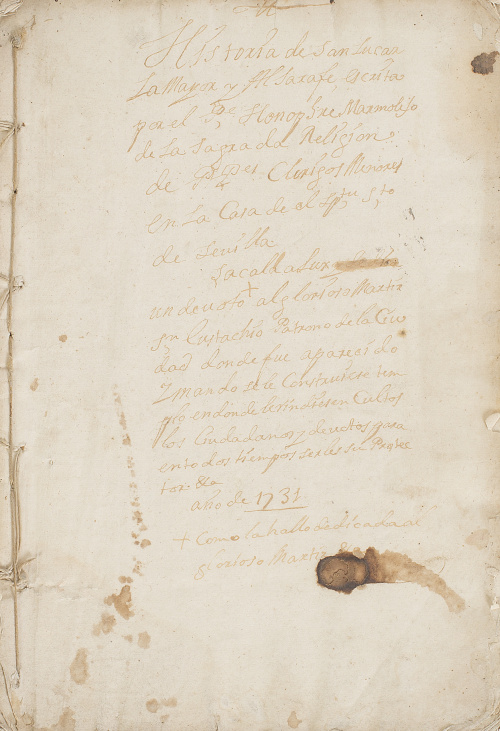 Historia de San Lucar
La Mayor y Alsarafe, escrita
por el Pe Honophre Marmolejo
de La Sagrada Religion
de PPes Clerigos Menores
en La Casa de el Sptu Sto
de Sevilla
Sacala a Luz
un devoto + al glorioso Martir
Sn Eustachio Patrono de la Ciu
dad donde fue apareçido
y mando se le Construiese tem
plo en donde le rindiesen Cultos
los Ciudadanos y devotos para
en todos tiempos serles su Protec
tor &a
año de 1731
+ Como la hallo dedicada al
glorioso Martir &a